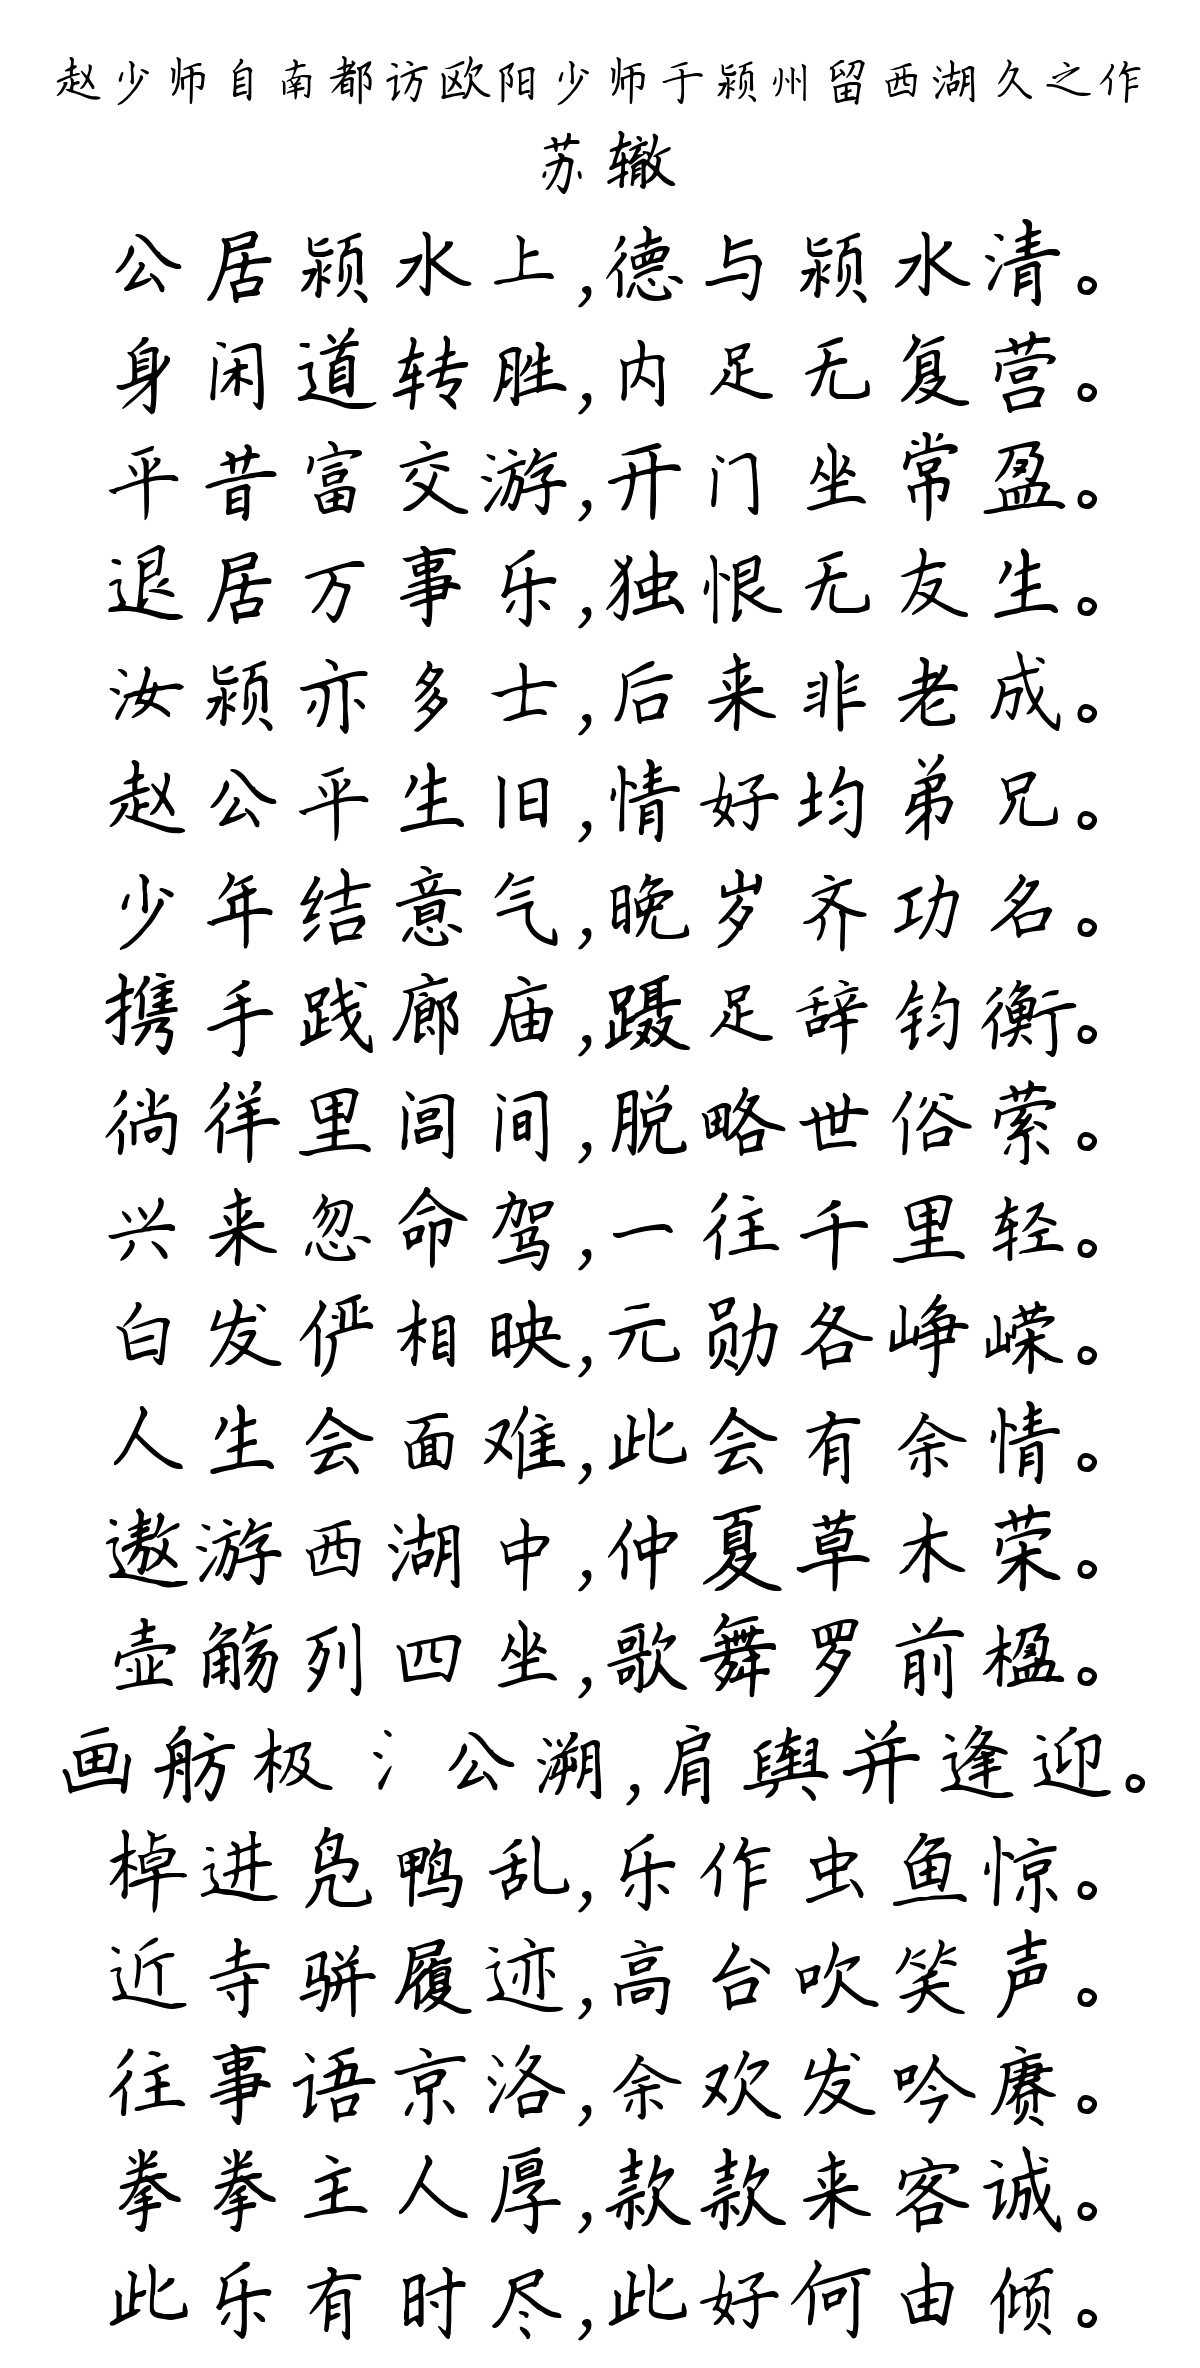 赵少师自南都访欧阳少师于颍州留西湖久之作
苏辙
公居颍水上,德与颍水清。
身闲道转胜,内足无复营。
平昔富交游,开门坐常盈。
退居万事乐,独恨无友生。
汝颍亦多士,后来非老成。
赵公平生旧,情好均弟兄。
少年结意气,晚岁齐功名。
携手践廊庙,蹑足辞钧衡。
徜徉里闾间,脱略世俗萦。
兴来忽命驾,一往千里轻。
白发俨相映,元勋各峥嵘。
人生会面难,此会有余情。
遨游西湖中,仲夏草木荣。
壶觞列四坐,歌舞罗前楹。
画舫极氵公溯,肩舆并逢迎。
棹进凫鸭乱,乐作虫鱼惊。
近寺骈履迹,高台吹笑声。
往事语京洛,余欢发吟赓。
拳拳主人厚,款款来客诚。
此乐有时尽,此好何由倾。